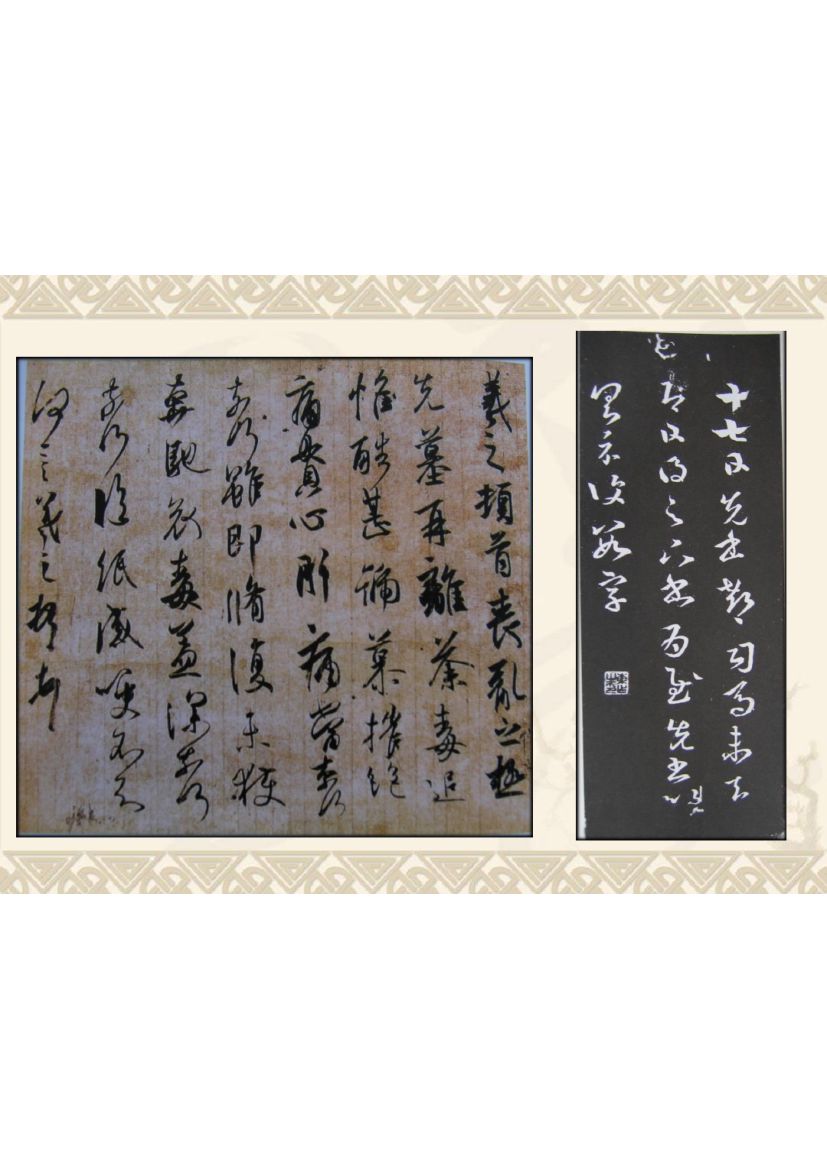 羲之頓首喪亂之極
先墓再離荼毒追
惟酷甚號慕摧絕
痛貫心肝痛當奈何
奈何雖即脩復未獲
奔馳哀毒益深奈何
奈何臨紙感哽不知
何言羲之頓首頓首
十七日先書郗司馬未去
即日得足下書為慰先書以
具示復數字